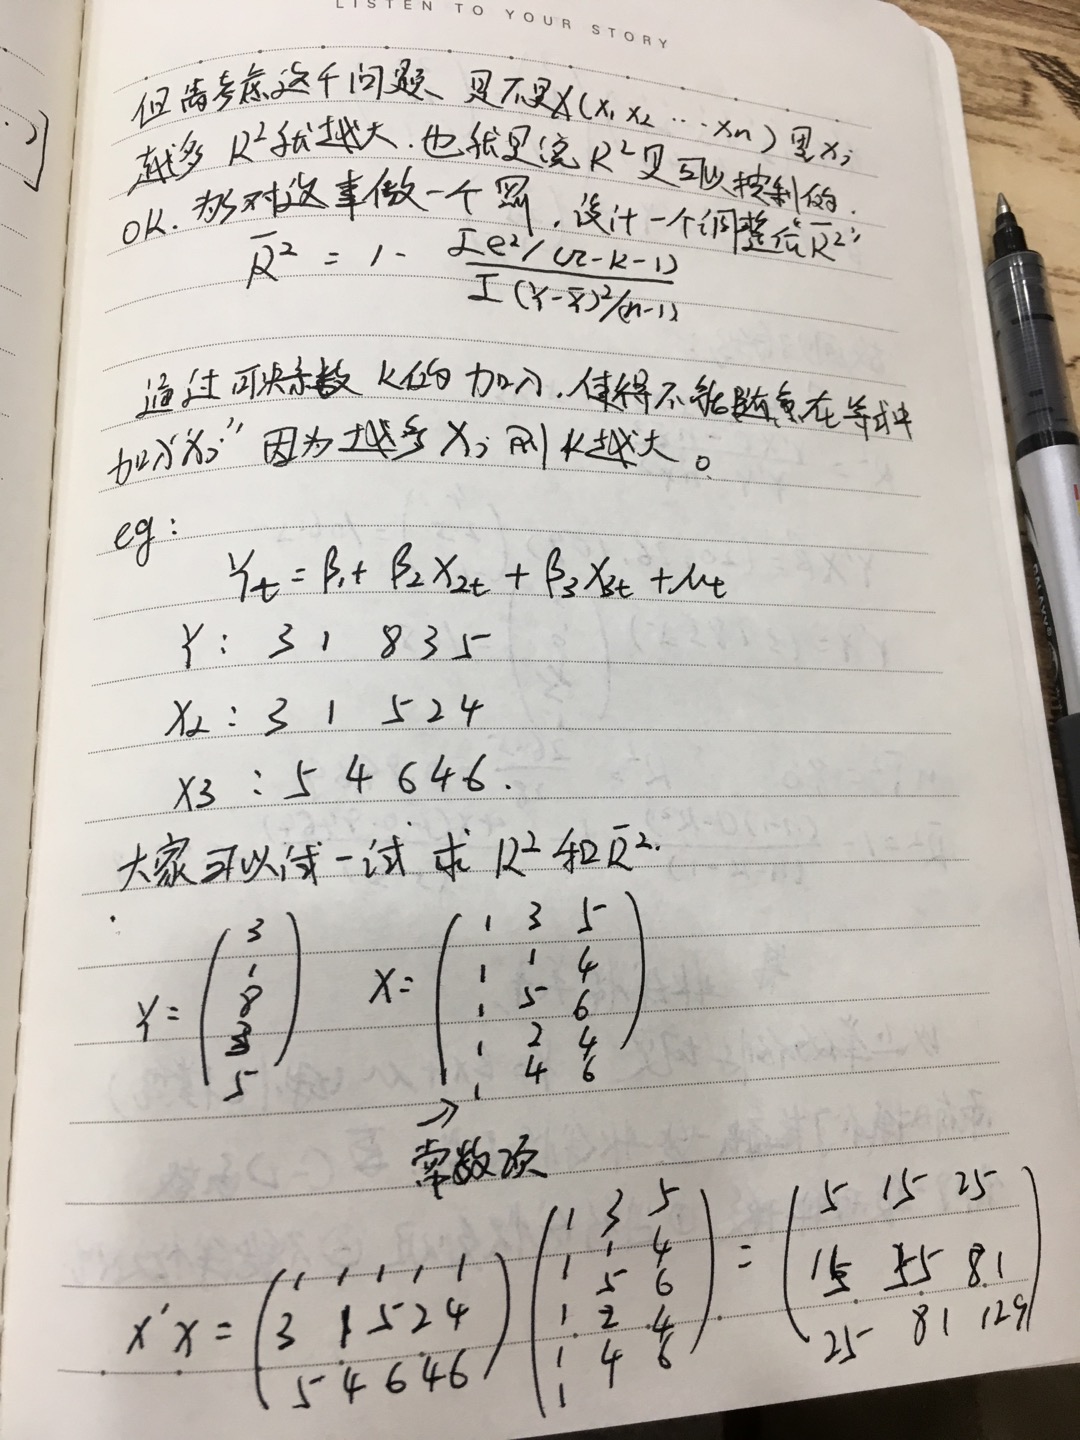 LISTEN TO YOUR STORY
但需考虑这个问题、是不是X(X₁ X₂ … Xn)里Xj
越多 R²就越大.也就是说 R²是可以控制的.
OK. 为对这事做一个罚,设计一个调整值R̄²:
R̄² = 1 - Σe²/(n-k-1) / Σ(Y-Ȳ)²/(n-1)
通过可决系数 K值的加入.使得不能随意在等式中
加入"Xj" 因为越多 Xj 则 K越大。
eg:
Yt = β₁ + β₂X₂t + β₃X₃t + μt
Y: 3 1 8 3 5
X2: 3 1 5 2 4
X3: 5 4 6 4 6.
大家可以试一试 求 R² 和 R̄².
Y = (3 1 8 3 5) X = (1 3 5
1 1 4
1 5 6
1 2 4
1 4 6)
→
常数项
X'X = (1 1 1 1 1
3 1 5 2 4
5 4 6 4 6) (1 3 5
1 1 4
1 5 6
1 2 4
1 4 6) = (5 15 25
15 55 81
25 81 129)